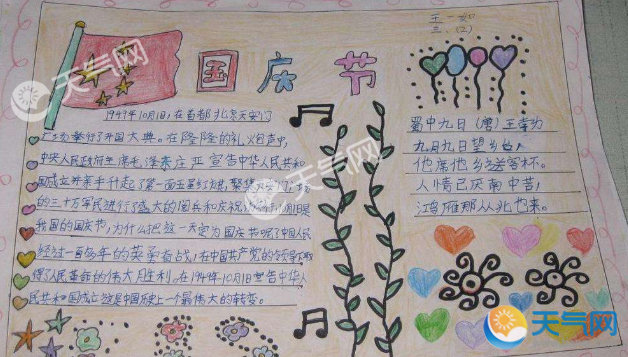 王一如
三.(2)
国庆节
1949年10月1日,在首都北京天安门
广场举行了开国大典。在隆隆的礼炮声中,
中央人民政府主席毛泽东庄严宣告中华人民共和
国成立并亲手升起了第一面五星红旗,聚集天安门广场
的三十万军民进行了盛大的阅兵和庆祝 10月1日是
我国的国庆节,为什么把这一天定为国庆节呢?中国人民
经过一百多年的英勇奋战,在中国共产党的领导下取
得了人民革命的伟大胜利。在1949年10月1日宣告中华人
民共和国成立这是中国历史上一个最伟大的转变。
蜀中九日(唐)王勃为
九月九日望乡台,
他席他乡送客杯。
人情已厌南中苦,
鸿雁那从北地来。
天气网
天气网
天气网
天气网